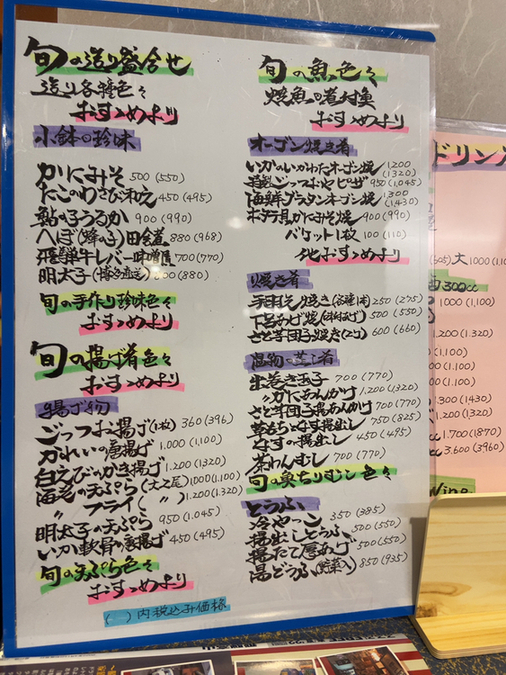 旬の造り盛合せ
造り各種色々
おすゝめより
小鉢の珍味
かにみそ 500 (550)
たこのわさび和え 450 (495)
鮎の子うるか 900 (990)
へぼ(蜂の子)田舎煮 880 (968)
飛騨牛レバー味噌煮 700 (770)
明太子 (880)
旬の手作り珍味色々
おすゝめより
旬の揚げ肴色々
おすゝめより
揚げ物
ごっつお揚げ(1枚) 360 (396)
かれいの唐揚げ 1.000 (1.100)
白えびのかき揚げ 1.200 (1.320)
海老の天ぷら(大2尾) 1000 (1.100)
〃 フライ( 〃 ) 1.200 (1.320)
明太子の天ぷら 950 (1.045)
いか軟骨の唐揚げ 450 (495)
旬の天ぷら色々
おすゝめより
( )内税込み価格
旬の魚色々
焼魚の煮付業
おすゝめより
オーブン焼き肴
いかのいかわたオーブン焼 1.200 (1.320)
特製ごっつおやピザ 950 (1.045)
海鮮グラタンオーブン焼 1.300 (1.430)
ホタテ貝かにみそ焼 900 (990)
バケット1枚 100 (110)
他おすゝめより
り焼き肴
手羽先焼き(各種1本) 250 (275)
下呂あげ焼(味付あげ) 500 (550)
さと芋団子焼き(2ケ) 600 (660)
温物の蒸し肴
出巻き玉子 700 (770)
〃かにあんかけ 1.200 (1.320)
さと芋団子揚あんかけ 700 (770)
草もちとなす揚出し 750 (825)
なすの揚出し 450 (495)
茶わんむし 700 (770)
旬の魚ちりむし色々
とうふ
冷やっこ 350 (385)
揚出しとうふ 500 (550)
揚たて厚あげ 500 (550)
湯どうふ(野菜入) 850 (935)
ドリンク
(605) 大 1000 (1.10
300cc
1000 (1.100)
1.200 (1.320)
(1.100)
(1.100)
1.300 (1430)
1.200 (1.320)
1.700 (1870)
3.600 (3960)
Wine